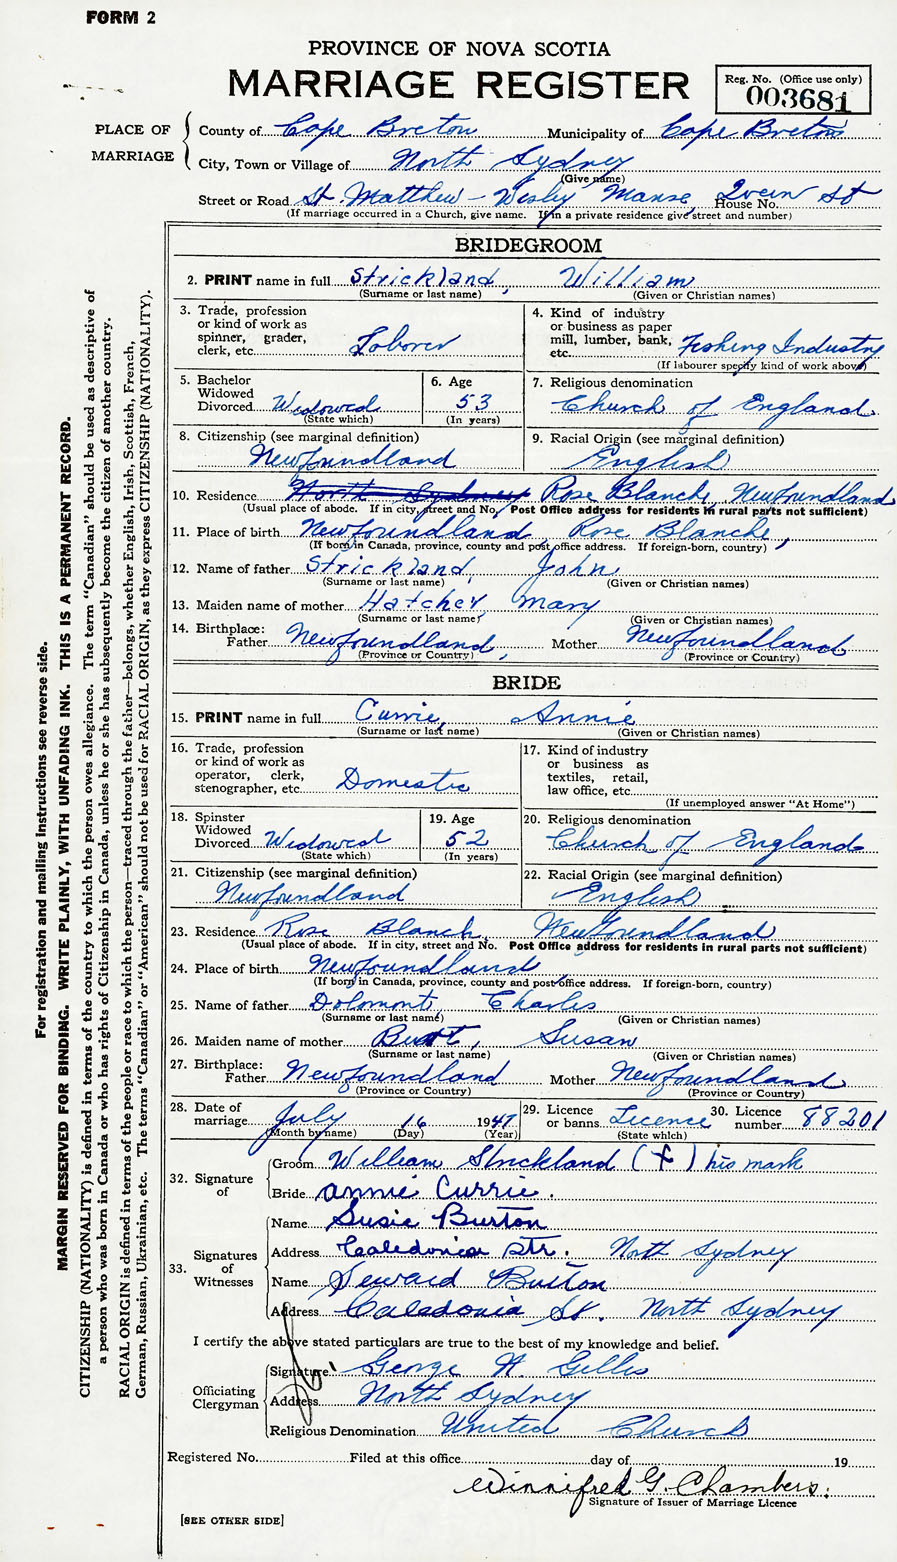 FORM 2
PROVINCE OF NOVA SCOTIA
MARRIAGE REGISTER
Reg. No. (Office use only)
003681
PLACE OF MARRIAGE
County of Cape Breton Municipality of Cape Breton
City, Town or Village of North Sydney
(Give name)
Street or Road St. Matthew - Wesley Manse, Queen St House No.
(If marriage occurred in a Church, give name. If in a private residence give street and number)
BRIDEGROOM
2. PRINT name in full Strickland, William
(Surname or last name) (Given or Christian names)
3. Trade, profession or kind of work as spinner, grader, clerk, etc. Laborer
4. Kind of industry or business as paper mill, lumber, bank, etc. Fishing Industry
(If labourer specify kind of work above)
5. Bachelor Widowed Divorced Widowed
(State which)
6. Age 53
(In years)
7. Religious denomination
Church of England
8. Citizenship (see marginal definition)
Newfoundland
9. Racial Origin (see marginal definition)
English
10. Residence North Sydney Rose Blanche, Newfoundland
(Usual place of abode. If in city, street and No. Post Office address for residents in rural parts not sufficient)
11. Place of birth Newfoundland, Rose Blanche,
(If born in Canada, province, county and post office address. If foreign-born, country)
12. Name of father Strickland, John
(Surname or last name) (Given or Christian names)
13. Maiden name of mother Hatcher, Mary
(Surname or last name) (Given or Christian names)
14. Birthplace: Father Newfoundland, Mother Newfoundland
(Province or Country) (Province or Country)
BRIDE
15. PRINT name in full Currie, Annie
(Surname or last name) (Given or Christian names)
16. Trade, profession or kind of work as operator, clerk, stenographer, etc. Domestic
17. Kind of industry or business as textiles, retail, law office, etc.
(If unemployed answer "At Home")
18. Spinster Widowed Divorced Widowed
(State which)
19. Age 52
(In years)
20. Religious denomination
Church of England
21. Citizenship (see marginal definition)
Newfoundland
22. Racial Origin (see marginal definition)
English
23. Residence Rose Blanch, Newfoundland
(Usual place of abode. If in city, street and No. Post Office address for residents in rural parts not sufficient)
24. Place of birth Newfoundland
(If born in Canada, province, county and post office address. If foreign-born, country)
25. Name of father Dolomont, Charles
(Surname or last name) (Given or Christian names)
26. Maiden name of mother Butt, Susan
(Surname or last name) (Given or Christian names)
27. Birthplace: Father Newfoundland Mother Newfoundland
(Province or Country) (Province or Country)
28. Date of marriage July 16 1947
(Month by name) (Day) (Year)
29. Licence or banns Licence
(State which)
30. Licence number 88201
32. Signature of
Groom William Strickland (+) his mark
Bride Annie Currie.
33. Signatures of Witnesses
Name Susie Burton
Address Caledonia Str. North Sydney
Name Seward Burton
Address Caledonia St. North Sydney
I certify the above stated particulars are true to the best of my knowledge and belief.
Officiating Clergyman
Signature George H. Gillis
Address North Sydney
Religious Denomination United Church
Registered No. Filed at this office day of 19
Winnifred G. Chambers.
Signature of Issuer of Marriage Licence
[SEE OTHER SIDE]
For registration and mailing instructions see reverse side.
MARGIN RESERVED FOR BINDING. WRITE PLAINLY, WITH UNFADING INK. THIS IS A PERMANENT RECORD.
CITIZENSHIP (NATIONALITY) is defined in terms of the country to which the person owes allegiance. The term "Canadian" should be used as descriptive of
a person who was born in Canada or who has rights of Citizenship in Canada, unless he or she has subsequently become the citizen of another country.
RACIAL ORIGIN is defined in terms of the people or race to which the person—traced through the father—belongs, whether English, Irish, Scottish, French,
German, Russian, Ukrainian, etc. The terms "Canadian" or "American" should not be used for RACIAL ORIGIN, as they express CITIZENSHIP (NATIONALITY).